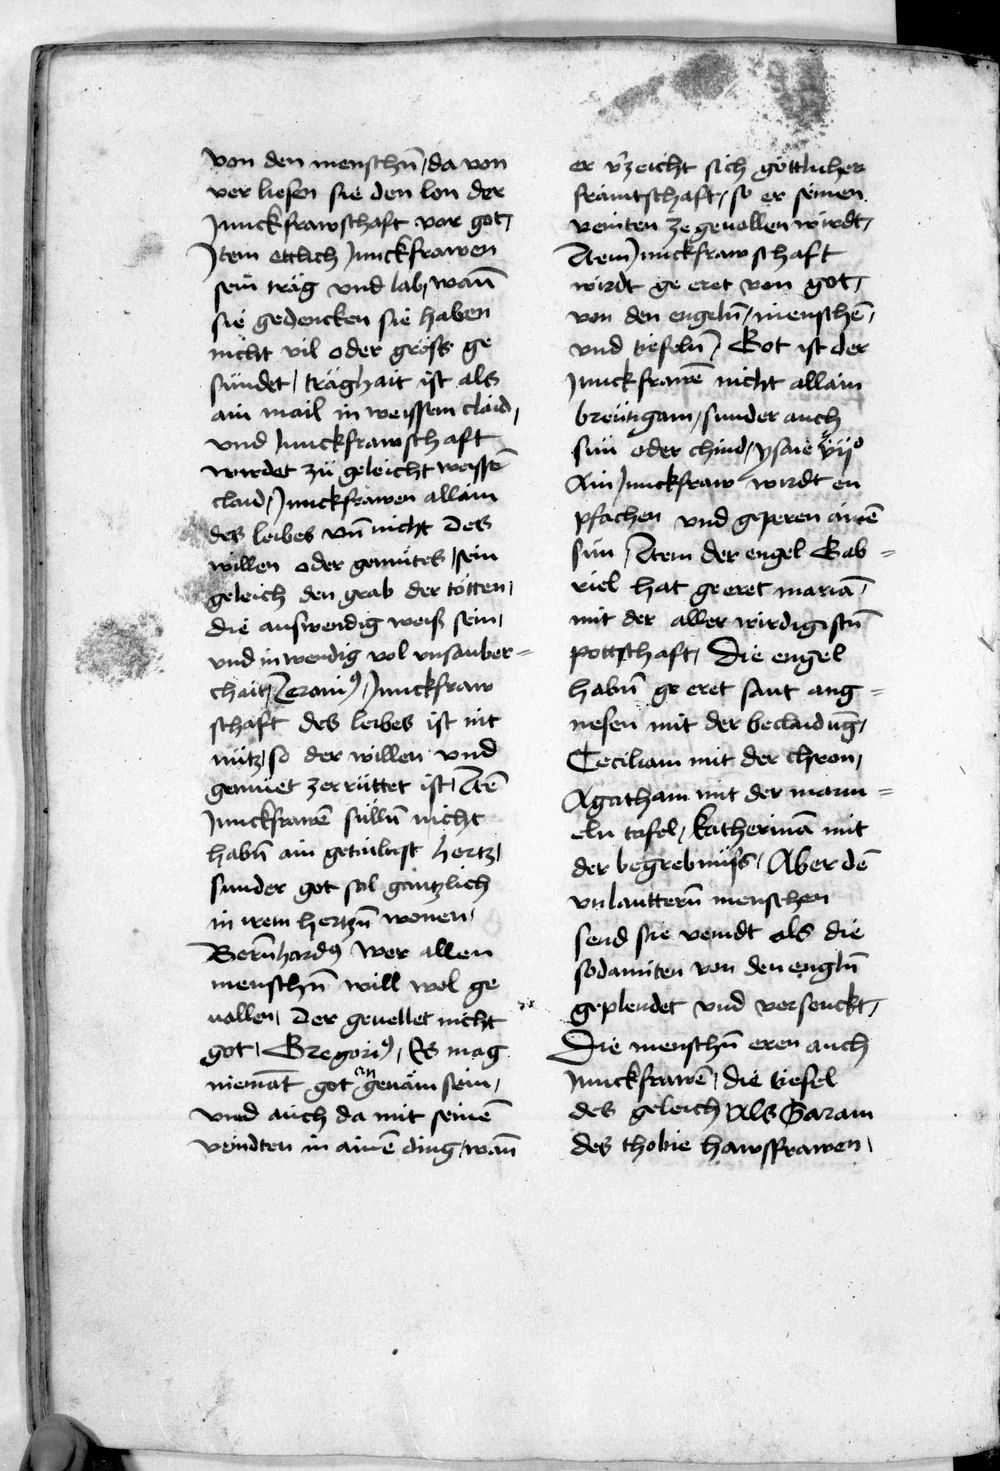 von den menschn̄ / da von
ver liesen sie den lon der
Junckfrawschaft vor got /
Jtem ettlich Junckfrawen
sein träg vnd lab / wan̄
sie gedencken sie haben
nicht vil oder gröss ge
sündet / träghait ist als
ain mail in weyssem claid /
vnd Junckfrawschaft
wirdet zü geleicht weyssē
claid / Junckfrawen allain
des leibes vn̄ nicht des
willen oder gemütes / sein
geleich den grab der totten /
die auswendig weis sein /
vnd inwendig vol vnsauber=
chait / Jeronimꝰ / Junckfraw
schaft des leibes ist nit
nütz / so der willen vnd
gemüet zerrüttet ist / Jtē
Junckfrawē sülln̄ nicht
habn̄ ain hertz /
sunder got sol gäntzlich
in irem hertzn̄ wonen /
Bern̄hardꝰ wer allen
menschn̄ will wol ge
uallen / der geuellet nicht
got / Gregoriꝰ / Es mag
niemāt got an genäm sein /
vnd auch da mit seinē
veindten in ainē ding / wan̄
er v̓zeicht sich göttlicher
fräintschaft / so er seinen
veinten ze geuollen wirdt /
Jtem Junckfrawschaft
wirdt ge eret von got /
von den engeln̄ / menschē /
vnd tiefeln̄ / Got ist der
Junckfrawē nicht allain
breütigam / sunder auch
sün oder chind / ysaie vijo
Ain Junckfraw wirdt en
pfachen vnd geperen ainē
sün / Jtem der engel Gab=
riel hat ge eret mariā
mit der aller wirdigistn̄
pottschaft / Die engel
habn̄ ge eret sant ang=
nesen mit der beclaidūg /
Ceciliam mit der chron /
Agatham mit der marm=
eln tafel / katherinā mit
der begrebnüss / Aber dē
vnlauttern̄ menschen
send sie veindt als die
sodamiten von den engln̄
geplendet vnd versenckt /
Die menschn̄ eren auch
Junckfrawē / die tiefel
des geleich / Als Saram
des thobie hawsfrawen /